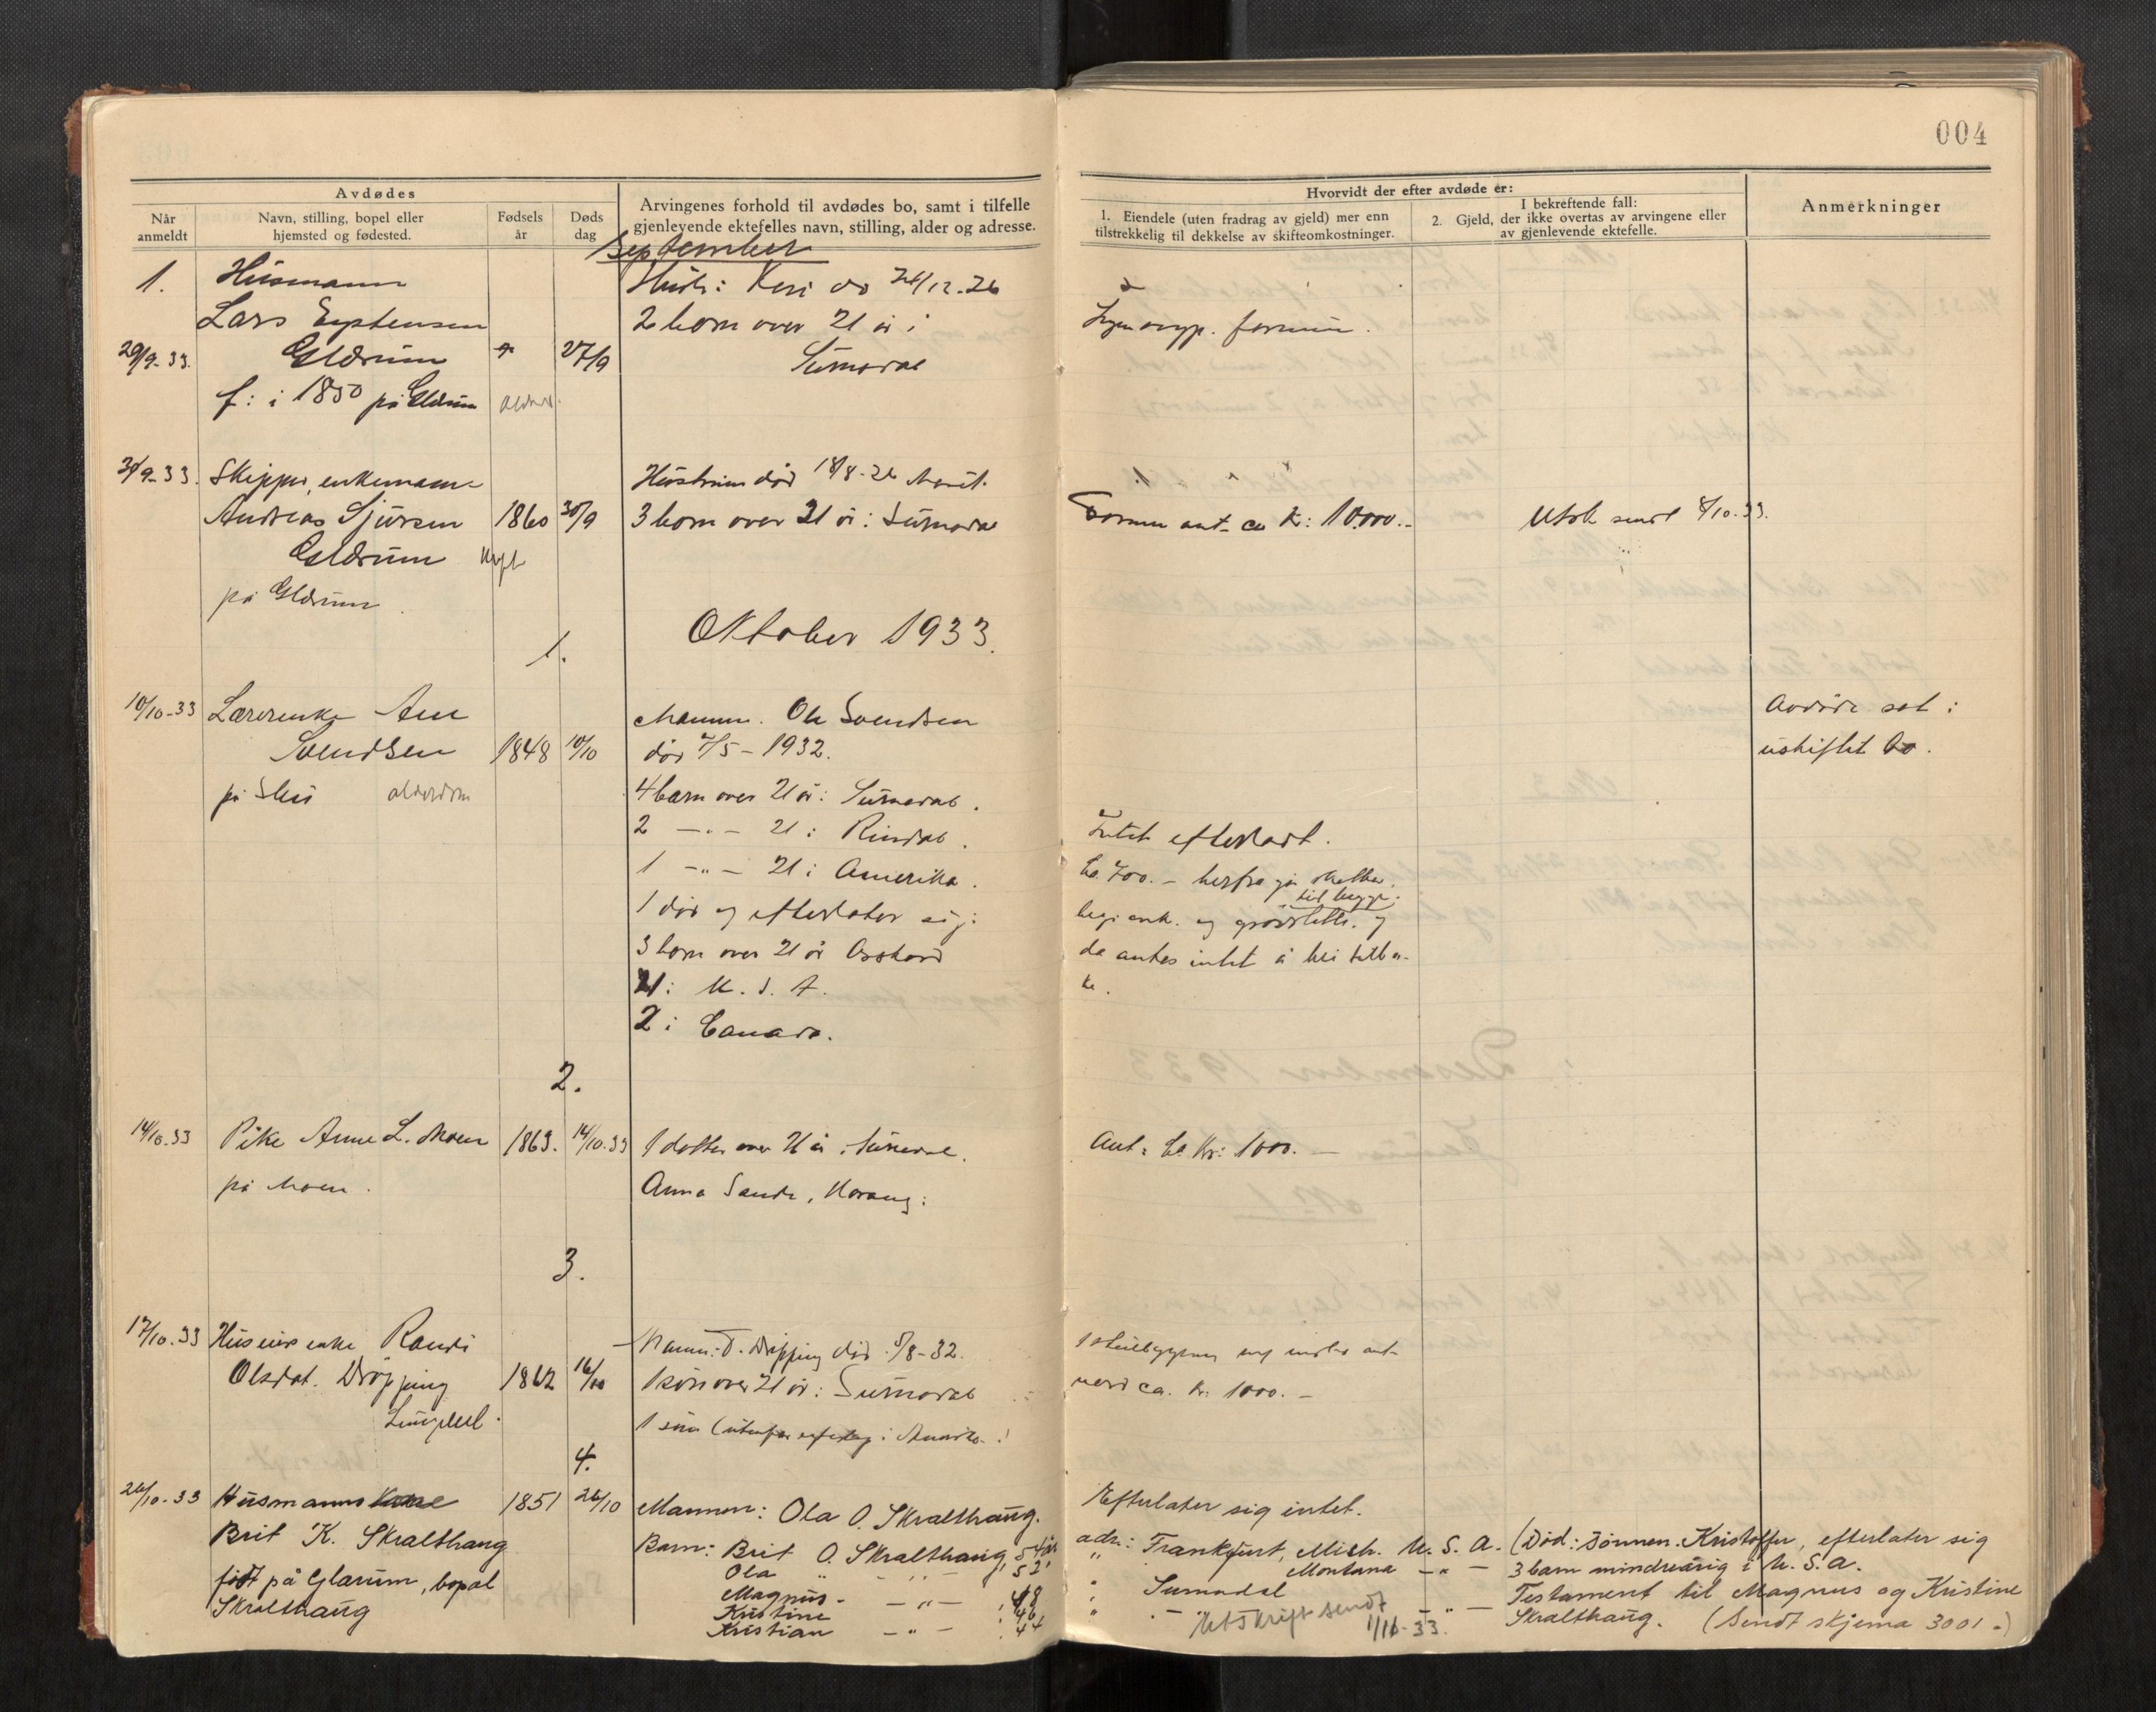 004
Avdødes
Når anmeldt
Navn, stilling, bopel eller hjemsted og fødested.
Fødsels år
Døds dag
Arvingenes forhold til avdødes bo, samt i tilfelle gjenlevende ektefelles navn, stilling, alder og adresse.
Hvorvidt der efter avdøde er:
1. Eiendele (uten fradrag av gjeld) mer enn tilstrekkelig til dekkelse av skifteomkostninger.
I bekreftende fall:
2. Gjeld, der ikke overtas av arvingene eller av gjenlevende ektefelle.
Anmerkninger
September
1. Husmann
Lars Eystensen
29/9-33. Glærum 27/9
f: i 1850 på Glærum
Hustr: Kari dø 24/12-26
2 barn over 21 år i
Surnadal
formue.
30/9-33. Skipper, enkemann
Andreas Sjursen 1860 30/9
Glærum
på Glærum
Hustruen død 18/8-26 Marit.
3 barn over 21 år: Surnadal
Formue ant. ca Kr: 10.000.-
Utsk sendt 8/10.33.
Oktober 1933.
1.
10/10-33 Lærerenke Ane
Svendsen 1848 10/10
på Skei alderdom
Mannen. Ole Svendsen
død 7/5-1932.
4 barn over 21 år: Surnadal.
2 -"- 21 i Rindal.
1 -"- 21 i Amerika.
1 død og efterlater sig:
3 barn over 21 år
21: U.S.A.
2 i Canada.
Intet efterladt.
Ca 700.- herfra går skatter,
til begge.
begr. omk. og gravstøtte. og
da antas intet å bli tilba-
ke.
Avdøde sat i
uskiftet bo.
2.
14/10.33 Pike Anne L. Moen 1863. 14/10.33
på Moen.
1 dotter over 21 år i Surnadal.
Anna Sande,
Ant: Ca Kr: 1000.-
3.
17/10.33 Huseier enke Randi
Olsdat. Drøpping 1862 16/10
Mann: T. Drøpping død 5/8-32.
1 søn over 21 år: Surnadal
1 søn i Amerika.
verd ca. kr: 1000.-
4.
26/10-33 Husmannskone 1851 26/10
Brit K. Skralthaug
født på Glærum, bopæl
Skralthaug
Mannen: Ola O. Skralthaug.
Barn: Brit O. Skralthaug, 54 år
Ola " -"- , 52"
Magnus - -"- , 48
Kristine , 46
Kristian -"- , 44
Efterlater sig intet.
adr.: Frankfurt, Mich. U.S.A. (Død: Sønnen Kristoffer, efterlater sig
" Montana -"- 3 barn mindreårig i U.S.A.
: Surnadal Testament til Magnus og Kristine
" -"- -"- Skralthaug. (Sendt skjema 3001.)
Utskrift sendt
1/11-33.